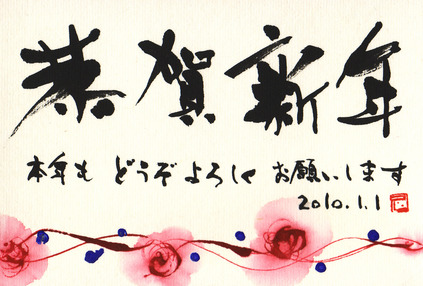 恭賀新年
本年も どうぞ よろしく お願いします
2010.1.1